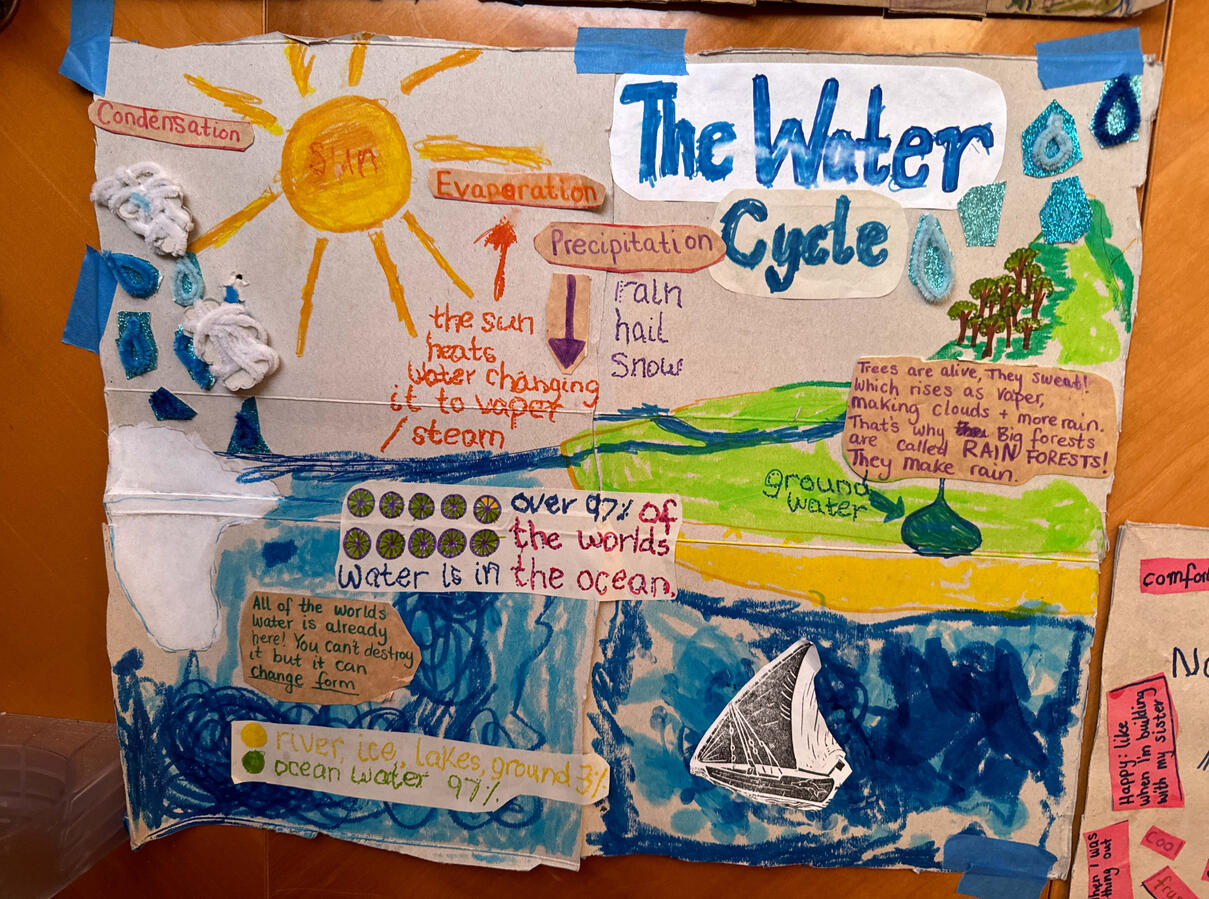 The Water
Cycle
Condensation
Sun
Evaporation
Precipitation
rain
hail
snow
the sun
heats
water changing
it to vaper
/ steam
Trees are alive, They sweat!
Which rises as vaper,
making clouds + more rain.
That's why Big forests
are called RAIN FORESTS!
They make rain.
ground
water
over 97% of
the worlds
water is in the ocean.
All of the worlds
water is already
here! You can't destroy
it but it can
change form
river, ice, lakes, ground 3%
ocean water 97%
comfor
No
Happy: like
when I'm building
with my sister
hen I was
thing out
Cool
frus